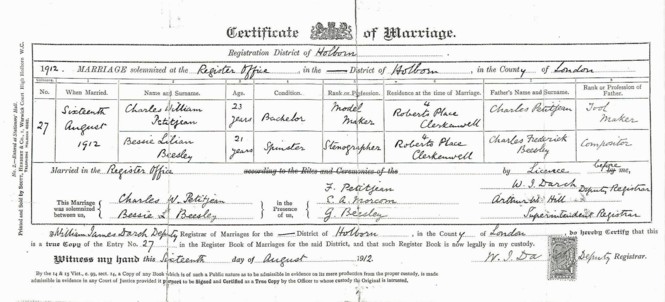 Certificate of Marriage.
Registration District of Holborn
1912. MARRIAGE solemnized at the Register Office, in the — District of Holborn, in the County of London
No. When Married. Name and Surname. Age. Condition. Rank or Profession. Residence at the time of Marriage. Father's Name and Surname. Rank or Profession of Father.
27 Sixteenth August 1912 Charles William Petitjean 23 years Bachelor Model Maker 4 Roberts Place Clerkenwell Charles Petitjean Tool Maker
Bessie Lilian Beesley 21 years Spinster Stenographer 4 Roberts Place Clerkenwell Charles Frederick Beesley Compositor
Married in the Register Office according to the Rites and Ceremonies of the by Licence before me,
This Marriage was solemnized between us, Charles W. Petitjean Bessie L Beesley in the Presence of us, F. Petitjean G. Beesley W. J. Darch Deputy Registrar Arthur W. Hill Superintendent Registrar
I William James Darch Deputy Registrar of Marriages for the — District of Holborn, in the County of London, do hereby Certify that this
is a true Copy of the Entry No. 27 in the Register Book of Marriages for the said District, and that such Register Book is now legally in my custody.
Witness my hand this Sixteenth day of August 1912. W. J. Da Deputy Registrar.
By the 14 & 15 Vict., c. 99, sect. 14, a Copy of any Book which is of such a Public nature as to be admissible in evidence on its mere production from the proper custody, is made
admissible in evidence in any Court of Justice provided it purport to be Signed and Certified as a True Copy by the Officer to whose custody the Original is intrusted.